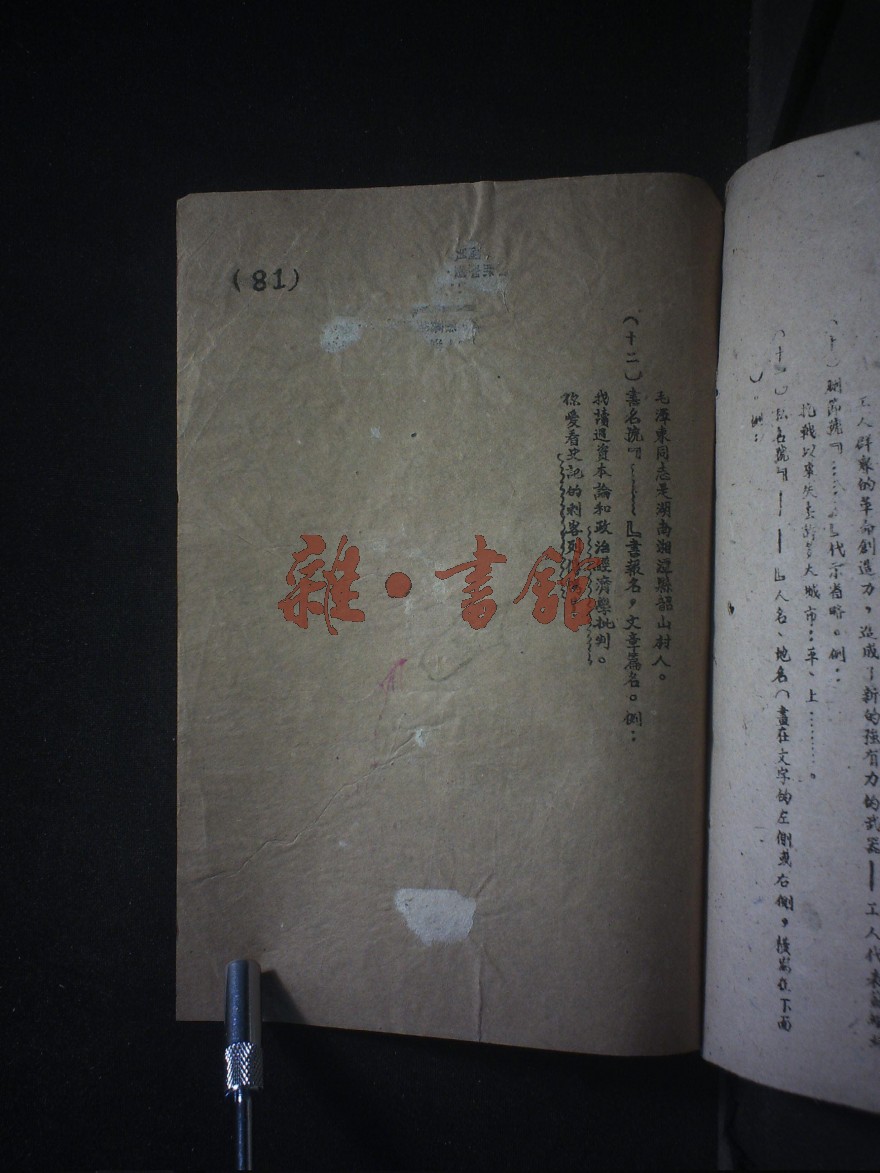 工人群眾的革命創造力，造成了新的強有力的武器——工人代表
（十）刪節號『……』代示省略。例：
抗戰以來失去許多大城市：平、上………。
（十一）私名號『——』人名、地名（畫在文字的左側或右側，橫寫在下面
）。例：
毛澤東同志是湖南湘潭縣韶山村人。
（十二）書名號『﹏﹏』書報名，文章篇名。例：
我讀過資本論和政治經濟學批判。
你愛看史記的刺客列傳
(81)
雜·書館